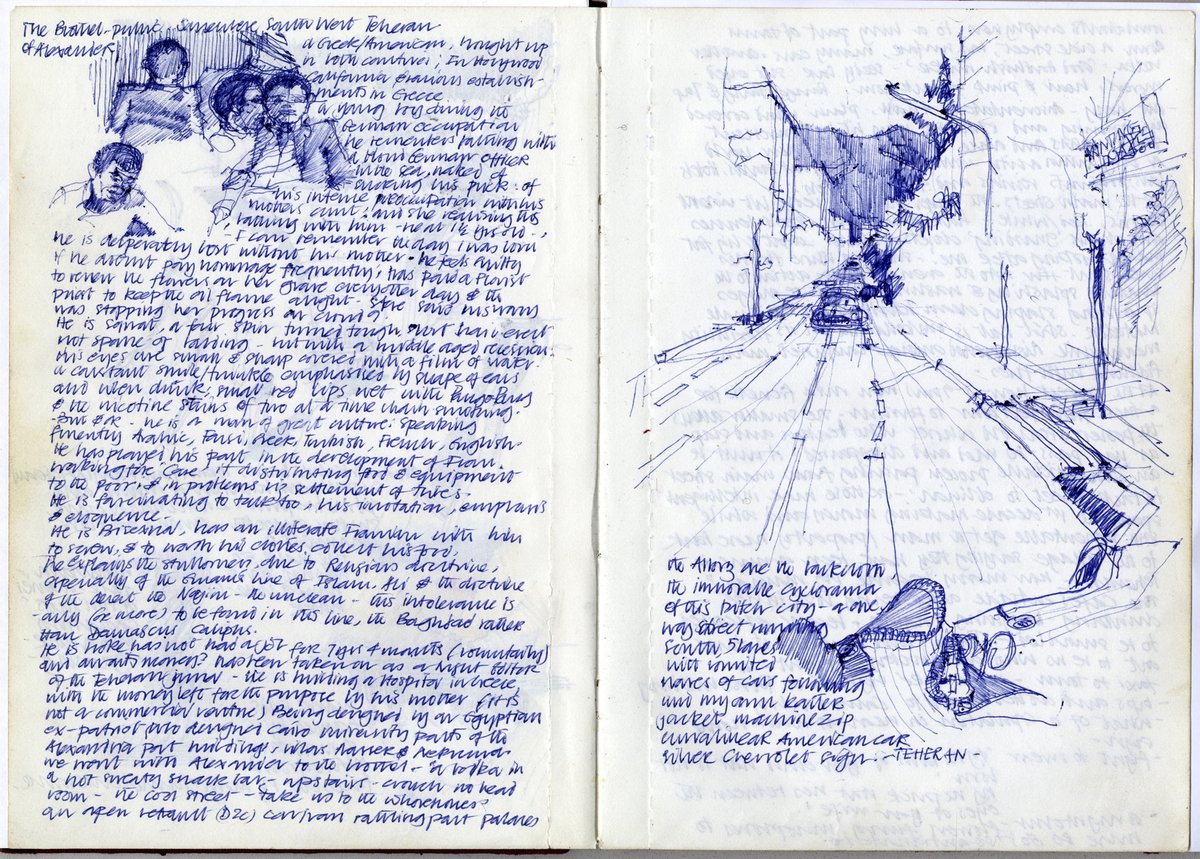 The Brothel-punk. Somewhere South West Teheran
of Alexander.
a Greek/American, brought up
in both countries; In Hollywood
California & various establish-
ments in Greece
a young boy during the
German occupation
he remembers bathing with
a blond German officer
in the sea, naked &
sucking his prick: of
his intense preoccupation with his
mothers cunt: and she realising this
bathing with him - near 1½ yrs old -,
I can remember the day I was born
He is desperately lost without his mother - he feels guilty
if he doesn't pay homage frequently; has paid a florist
to renew the flowers on her grave every other day & the
priest to keep the oil flame alight - She said his
was stopping her progress on clouds.
He is squat, a fair skin turned tough, short hair erect
not sparse or balding - but with a middle aged recession.
His eyes are small & sharp covered with a film of water:
a constant smile/twinkle emphasised by shape of ears
and when drunk, small red lips wet with
& the nicotine stains of two at a time chain smoking.
But &ok - he is a man of great culture: speaking
fluently Arabic, Farsi, Greek, Turkish, French, English.
He has played his part in the development of Iran.
working for 'Care' it distributing food & equipment
to the poor, & in problems vis settlement of tribes.
He is fascinating to talk to, his intonation, emphasis
& eloquence.
He is Bisexual, has an illiterate Iranian with him
to screw, & to wash his clothes, collect his food,
He explains the stubborness, due to Religious doctrine,
especially of the Line of Islam. Ali & the doctrine
of the the Najin - the unclean - this intolerance is
only (or more) to be found in this line, the Baghdad rather
than Damascus Caliphs.
He is broke has not had a job for 7 yrs 4 months (voluntarily)
and awaits money? has been taken on as a Night Editor
of the Teheran Journal - He is building a Hospital in Greece
with the money left for the purpose by his mother (it is
not a commercial venture) Being designed by an Egyptian
ex-patriot who designed Cairo University parts of the
Alexandria port buildings, when Nasser &
we went with Alexander to the brothel - a vodka in
a hot sweaty snack bar - upstairs - crouch no head
room - the cool street - Take us to the whorehouse?
an open renault (D2c) caravan rattling past palaces
the Alborz are the back cloth
the immovable cyclorama
of this bitch city - a one
way street running
South Slaves
with vomited
waves of cars following
and my arm leather
jacket machine zip
curvalinear American car
silver Chevrolet sign. - TEHERAN -